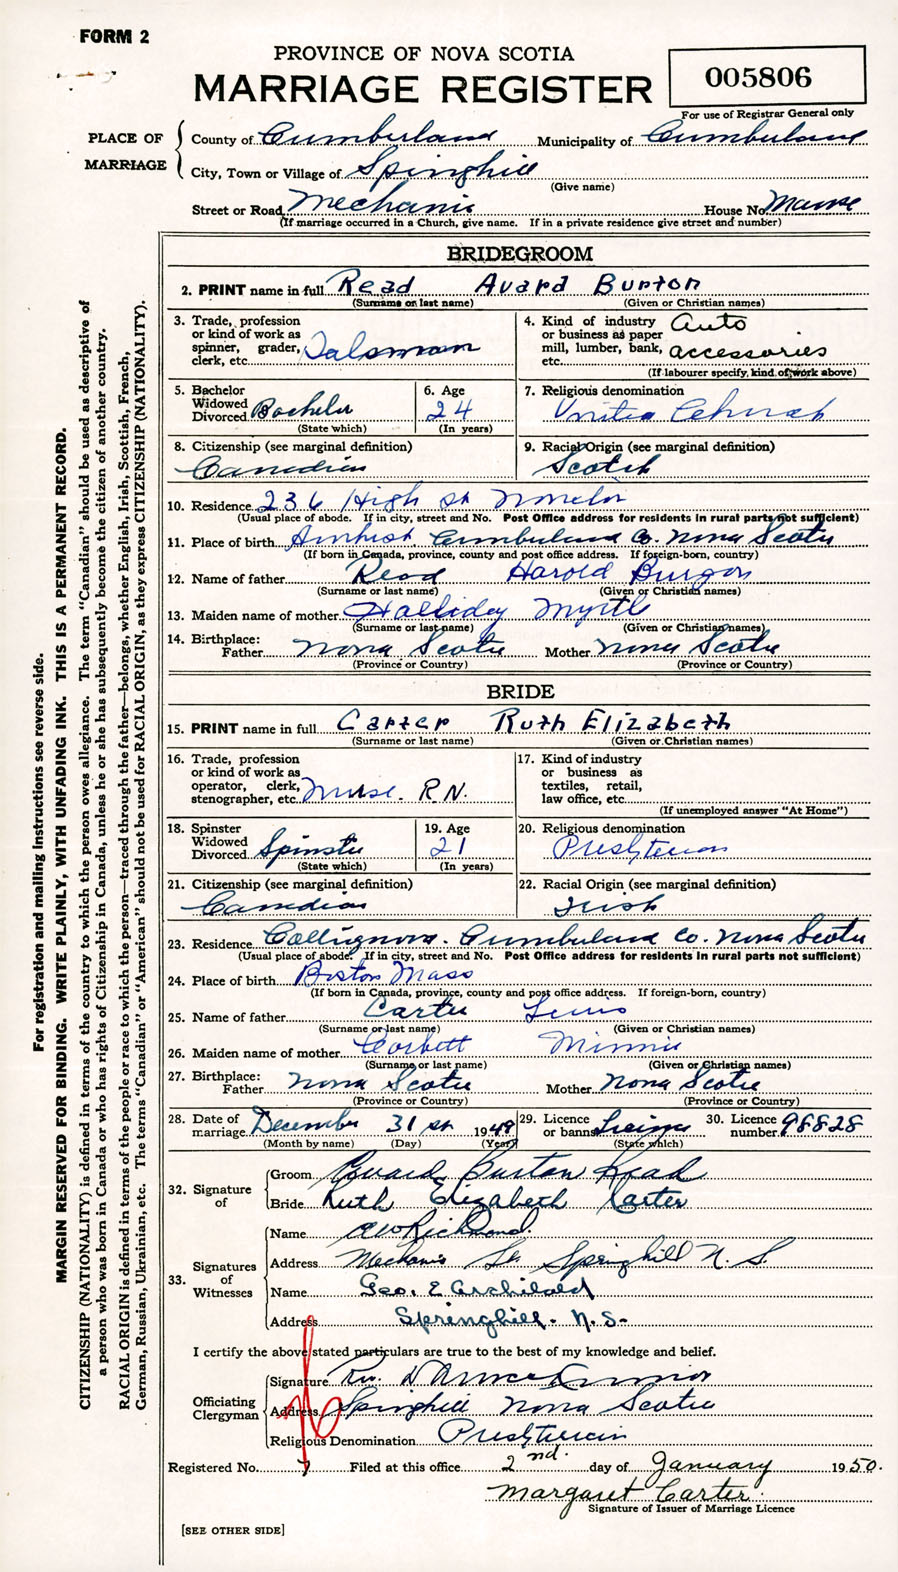 FORM 2
PROVINCE OF NOVA SCOTIA
MARRIAGE REGISTER
005806
For use of Registrar General only
PLACE OF MARRIAGE
County of Cumberland Municipality of Cumberland
City, Town or Village of Springhill
(Give name)
Street or Road Mechanic House No. Manse
(If marriage occurred in a Church, give name. If in a private residence give street and number)
BRIDEGROOM
2. PRINT name in full Read Avard Burton
(Surname or last name) (Given or Christian names)
3. Trade, profession or kind of work as spinner, grader, clerk, etc. Salsman
4. Kind of industry or business as paper mill, lumber, bank, etc. Auto accessories
(If labourer specify, kind of work above)
5. Bachelor Widowed Divorced Bachelor
(State which)
6. Age 24
(In years)
7. Religious denomination United Church
8. Citizenship (see marginal definition) Canadian
9. Racial Origin (see marginal definition) Scotch
10. Residence 236 High St
(Usual place of abode. If in city, street and No. Post Office address for residents in rural parts not sufficient)
11. Place of birth Amherst Cumberland Co. Nova Scotia
(If born in Canada, province, county and post office address. If foreign-born, country)
12. Name of father Read Harold
(Surname or last name) (Given or Christian names)
13. Maiden name of mother Halliday Myrtle
(Surname or last name) (Given or Christian names)
14. Birthplace: Father Nova Scotia Mother Nova Scotia
(Province or Country) (Province or Country)
BRIDE
15. PRINT name in full Carter Ruth Elizabeth
(Surname or last name) (Given or Christian names)
16. Trade, profession or kind of work as operator, clerk, stenographer, etc. Nurse. R.N.
17. Kind of industry or business as textiles, retail, law office, etc.
(If unemployed answer "At Home")
18. Spinster Widowed Divorced Spinster
(State which)
19. Age 21
(In years)
20. Religious denomination Presbyterian
21. Citizenship (see marginal definition) Canadian
22. Racial Origin (see marginal definition) Irish
23. Residence Cumberland Co. Nova Scotia
(Usual place of abode. If in city, street and No. Post Office address for residents in rural parts not sufficient)
24. Place of birth Boston Mass
(If born in Canada, province, county and post office address. If foreign-born, country)
25. Name of father Carter Lewis
(Surname or last name) (Given or Christian names)
26. Maiden name of mother Corbett Minnie
(Surname or last name) (Given or Christian names)
27. Birthplace: Father Nova Scotia Mother Nova Scotia
(Province or Country) (Province or Country)
28. Date of marriage December 31st 1949
(Month by name) (Day) (Year)
29. Licence or banns License
(State which)
30. Licence number 98828
32. Signature of
Groom Avard Burton Read
Bride Ruth Elizabeth Carter
33. Signatures of Witnesses
Name A W Richmond
Address Mechanic St. Springhill N. S.
Name Geo. E Archibald
Address Springhill. N.S.
I certify the above stated particulars are true to the best of my knowledge and belief.
Officiating Clergyman
Signature Rev.
Address Springhill Nova Scotia
Religious Denomination Presbyterian
Registered No. 7 Filed at this office 2nd. day of January 1950.
Margaret Carter.
Signature of Issuer of Marriage Licence
[SEE OTHER SIDE]
For registration and mailing instructions see reverse side.
MARGIN RESERVED FOR BINDING. WRITE PLAINLY, WITH UNFADING INK. THIS IS A PERMANENT RECORD.
CITIZENSHIP (NATIONALITY) is defined in terms of the country to which the person owes allegiance. The term "Canadian" should be used as descriptive of
a person who was born in Canada or who has rights of Citizenship in Canada, unless he or she has subsequently become the citizen of another country.
RACIAL ORIGIN is defined in terms of the people or race to which the person—traced through the father—belongs, whether English, Irish, Scottish, French,
German, Russian, Ukrainian, etc. The terms "Canadian" or "American" should not be used for RACIAL ORIGIN, as they express CITIZENSHIP (NATIONALITY).